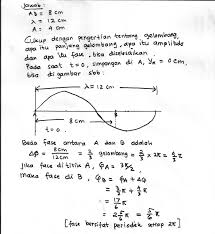 Jawab:
AB = 8 cm
λ = 12 cm
A = 4 cm
Cukup dengan pengertian tentang gelombang,
apa itu panjang gelombang, apa itu amplitudo
dan apa itu fase, bisa diselesaikan.
Pada saat t=0, simpangan di A, YA = 0 cm,
bisa digambar sbb:
λ = 12 cm
8 cm
t = 0.
Beda fase antara A dan B adalah
Δφ = 8cm/12cm = 2/3 gelombang = 2/3 x 2π = 4/3 π
jika fase di titik A, φA = 3π/2,
maka fase di B, φB = φA + Δφ
= 3/2 π + 4/3 π
= 17/6 π
= 2 5/6 π = 5/6 π
[fase bersifat periodik setiap 2π]